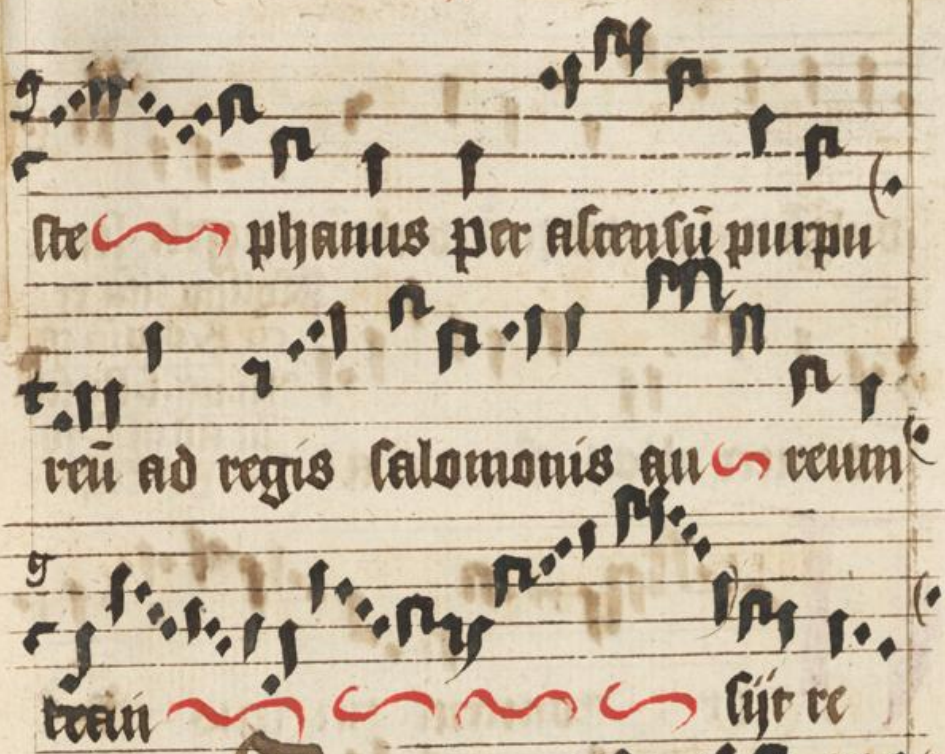 ste phanus per ascensū purpu
reū ad regis salomonis au reum
sijt re